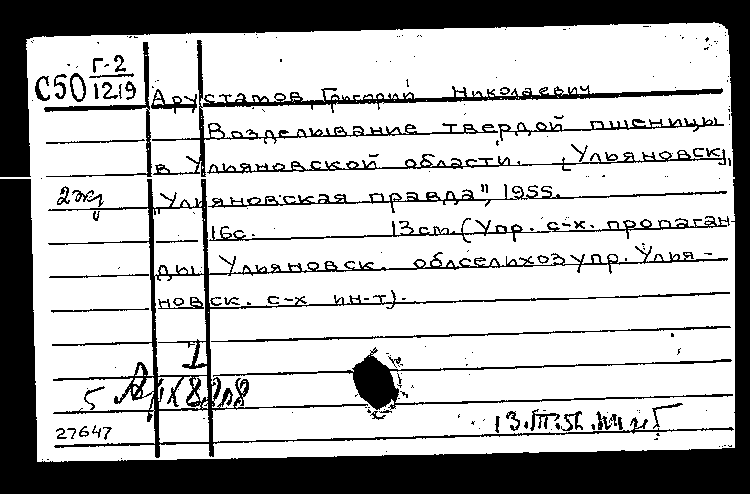 С50 Г-2
1219
Арустамов, Григорий Николаевич
Возделывание твердой пшеницы
в Ульяновской области. [Ульяновск],
2 экз
"Ульяновская правда", 1955.
16с. 13см. (Упр. с-х. пропаган-
ды Ульяновск. облсельхозупр. Улья-
новск. с-х ин-т).
1
5
27647